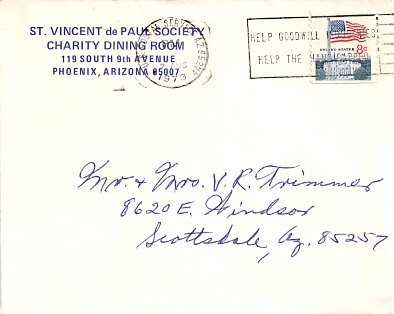 ST. VINCENT de PAUL SOCIETY
CHARITY DINING ROOM
119 SOUTH 9th AVENUE
PHOENIX, ARIZONA 85007
PM
1973
HELP GOODWILL
HELP THE HANDICAPPED
UNITED STATES 8c
Mr. & Mrs. V. R. Trimmer
8620 E. Windsor
Scottsdale, Az. 85257